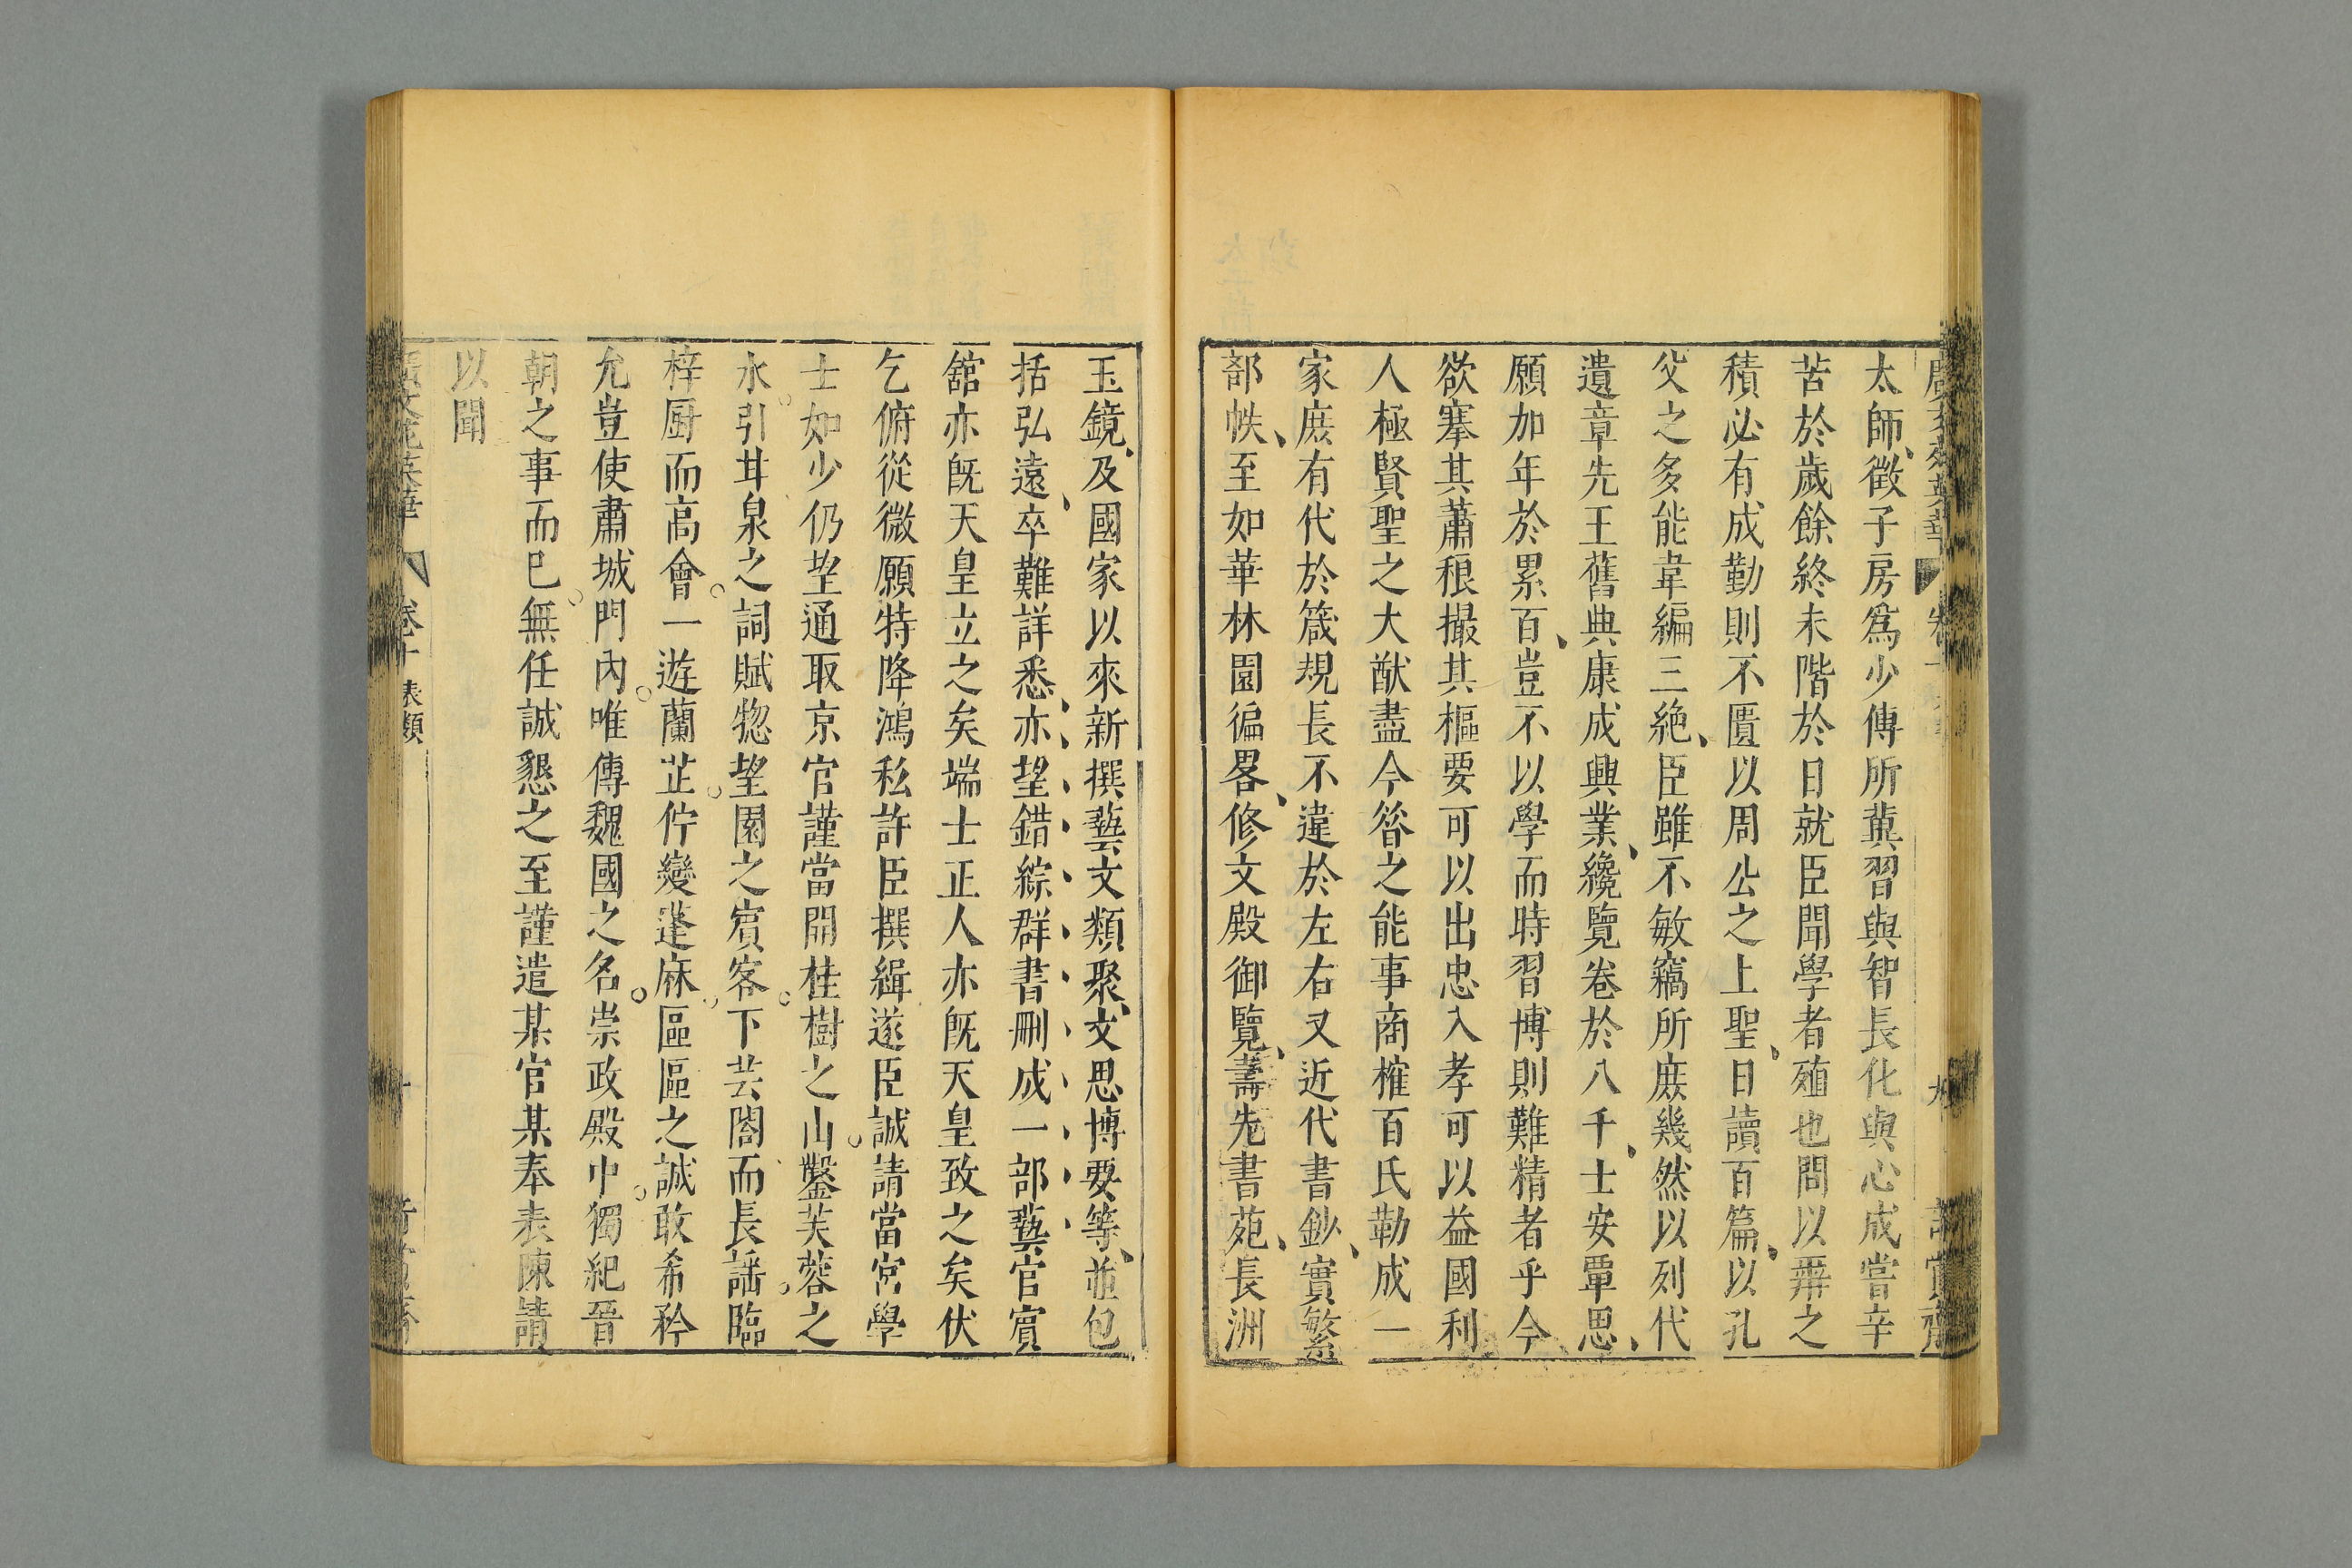 太師徵子房爲少傅所冀習與智長化與心成嘗辛
苦於歲餘終未階於日就臣聞學者殖也問以辨之
積必有成勤則不匱以周公之上聖日讀百篇以孔
父之多能韋編三絶臣雖不敏竊所庶幾然以列代
遺章先王舊典康成興業纔覽卷於八千士安覃思
願加年於累百豈不以學而時習博則難精者乎今
欲搴其蕭稂撮其樞要可以出忠入孝可以益國利
人極賢聖之大猷盡今昝之能事商榷百氏勒成一
家庶有代於箴規長不違於左右又近代書鈔實繁
部帙至如華林園徧畧修文殿御覽壽先書苑長洲
玉鏡及國家以來新撰藝文類聚文思博要等並包
括弘遠卒難詳悉亦望錯綜群書刪成一部藝官賓
舘亦旣天皇立之矣端士正人亦旣天皇致之矣伏
乞俯從微願特降鴻私許臣撰緝遂臣誠請當宮學
士如少仍望通取京官謹當開桂樹之山鑿芙蓉之
水引甘泉之詞賦惣望園之賓客下芸閣而長謡臨
梓厨而高會一遊蘭芷佇變蓬麻區區之誠敢希矜
允豈使肅城門內唯傳魏國之名崇政殿中獨紀晉
朝之事而已無任誠懇之至謹遣某官某奉表陳請
以聞
廣文苑英華 卷十 表類